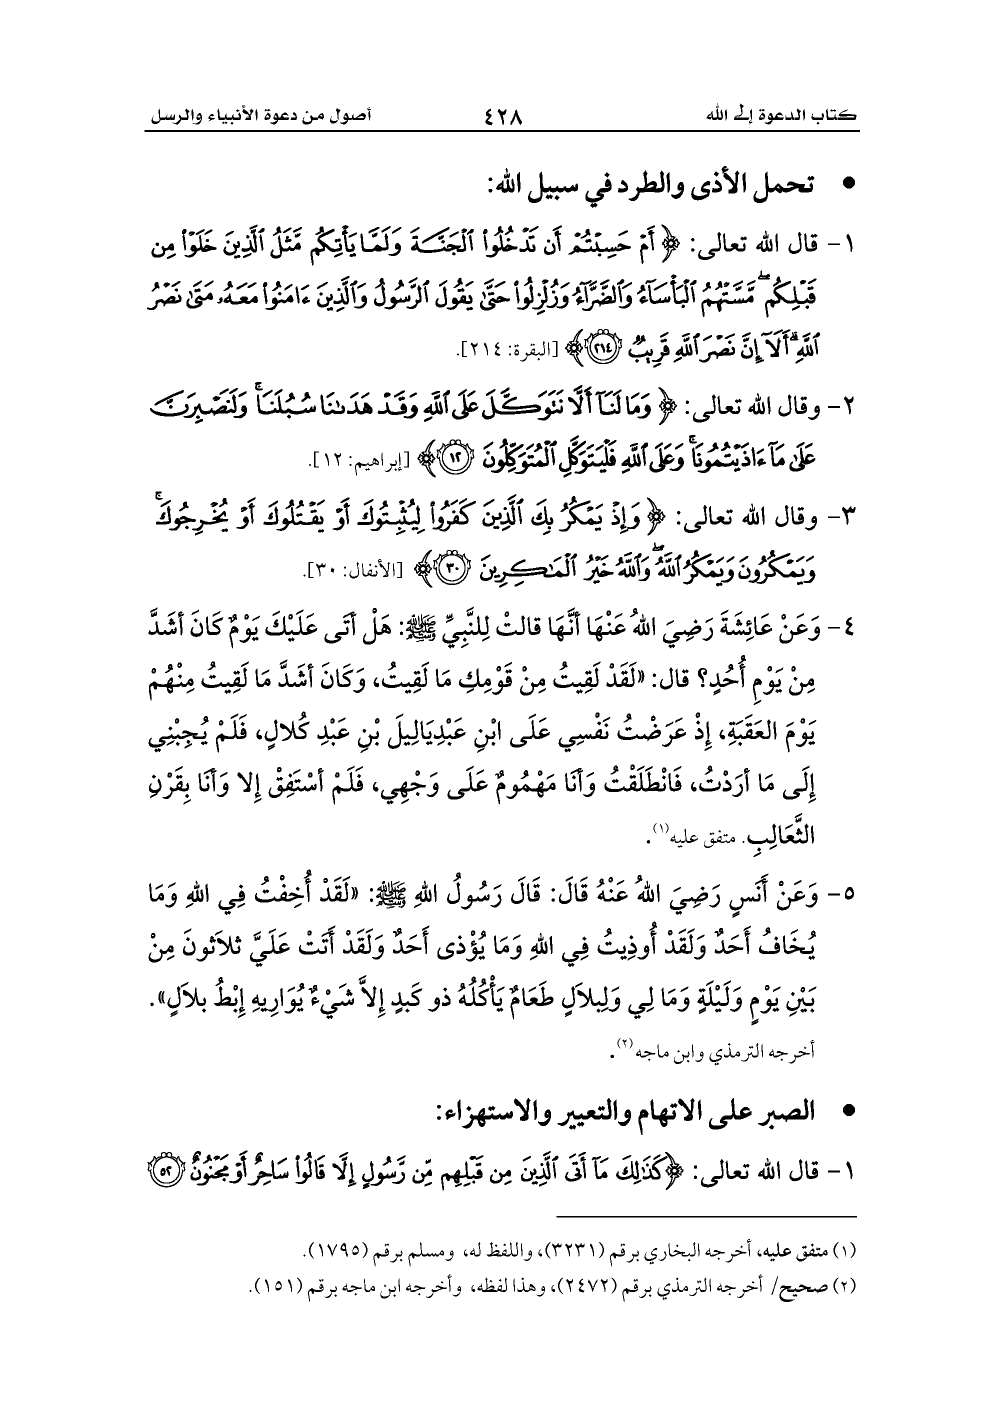 كتاب الدعوة إلى الله ٤٢٨ أصول من دعوة الأنبياء والرسل
• تحمل الأذى والطرد في سبيل الله:
١- قال الله تعالى: ﴿ أَمْ حَسِبْتُمْ أَن تَدْخُلُوا۟ ٱلْجَنَّةَ وَلَمَّا يَأْتِكُم مَّثَلُ ٱلَّذِينَ خَلَوْا۟ مِن
قَبْلِكُم ۖ مَّسَّتْهُمُ ٱلْبَأْسَآءُ وَٱلضَّرَّآءُ وَزُلْزِلُوا۟ حَتَّىٰ يَقُولَ ٱلرَّسُولُ وَٱلَّذِينَ ءَامَنُوا۟ مَعَهُۥ مَتَىٰ نَصْرُ
ٱللَّهِ ۗ أَلَآ إِنَّ نَصْرَ ٱللَّهِ قَرِيبٌ ۝٢١٤ ﴾ [البقرة: ٢١٤].
٢- وقال الله تعالى: ﴿ وَمَا لَنَآ أَلَّا نَتَوَكَّلَ عَلَى ٱللَّهِ وَقَدْ هَدَىٰنَا سُبُلَنَا ۚ وَلَنَصْبِرَنَّ
عَلَىٰ مَآ ءَاذَيْتُمُونَا ۚ وَعَلَى ٱللَّهِ فَلْيَتَوَكَّلِ ٱلْمُتَوَكِّلُونَ ۝١٢ ﴾ [إبراهيم: ١٢].
٣- وقال الله تعالى: ﴿ وَإِذْ يَمْكُرُ بِكَ ٱلَّذِينَ كَفَرُوا۟ لِيُثْبِتُوكَ أَوْ يَقْتُلُوكَ أَوْ يُخْرِجُوكَ ۚ
وَيَمْكُرُونَ وَيَمْكُرُ ٱللَّهُ ۖ وَٱللَّهُ خَيْرُ ٱلْمَـٰكِرِينَ ۝٣٠ ﴾ [الأنفال: ٣٠].
٤- وَعَنْ عَائِشَةَ رَضِيَ اللهُ عَنْهَا أَنَّهَا قالتْ لِلنَّبِيِّ ﷺ: هَلْ أتَى عَلَيْكَ يَوْمٌ كَانَ أشَدَّ
مِنْ يَوْمِ أُحُدٍ؟ قال: «لَقَدْ لَقِيتُ مِنْ قَوْمِكِ مَا لَقِيتُ، وَكَانَ أشَدَّ مَا لَقِيتُ مِنْهُمْ
يَوْمَ العَقَبَةِ، إِذْ عَرَضْتُ نَفْسِي عَلَى ابْنِ عَبْدِيَالِيلَ بْنِ عَبْدِ كُلالٍ، فَلَمْ يُجِبْنِي
إِلَى مَا أرَدْتُ، فَانْطَلَقْتُ وَأنَا مَهْمُومٌ عَلَى وَجْهِي، فَلَمْ أسْتَفِقْ إِلا وَأنَا بِقَرْنِ
الثَّعَالِبِ. متفق عليه(١).
٥- وَعَنْ أَنَسٍ رَضِيَ اللهُ عَنْهُ قَالَ: قَالَ رَسُولُ اللهِ ﷺ: «لَقَدْ أُخِفْتُ فِي اللهِ وَمَا
يُخَافُ أَحَدٌ وَلَقَدْ أُوذِيتُ فِي اللهِ وَمَا يُؤْذى أَحَدٌ وَلَقَدْ أَتَتْ عَلَيَّ ثلاَثونَ مِنْ
بَيْنِ يَوْمٍ وَلَيْلَةٍ وَمَا لِي وَلِبلاَلٍ طَعَامٌ يَأْكُلُهُ ذو كَبدٍ إِلاَّ شَيْءٌ يُوَارِيهِ إِبْطُ بلاَلٍ».
أخرجه الترمذي وابن ماجه(٢).
• الصبر على الاتهام والتعيير والاستهزاء:
١- قال الله تعالى: ﴿كَذَٰلِكَ مَآ أَتَى ٱلَّذِينَ مِن قَبْلِهِم مِّن رَّسُولٍ إِلَّا قَالُوا۟ سَاحِرٌ أَوْ مَجْنُونٌ ۝٥٢
(١) متفق عليه، أخرجه البخاري برقم (٣٢٣١)، واللفظ له، ومسلم برقم (١٧٩٥).
(٢) صحيح/ أخرجه الترمذي برقم (٢٤٧٢)، وهذا لفظه، وأخرجه ابن ماجه برقم (١٥١).